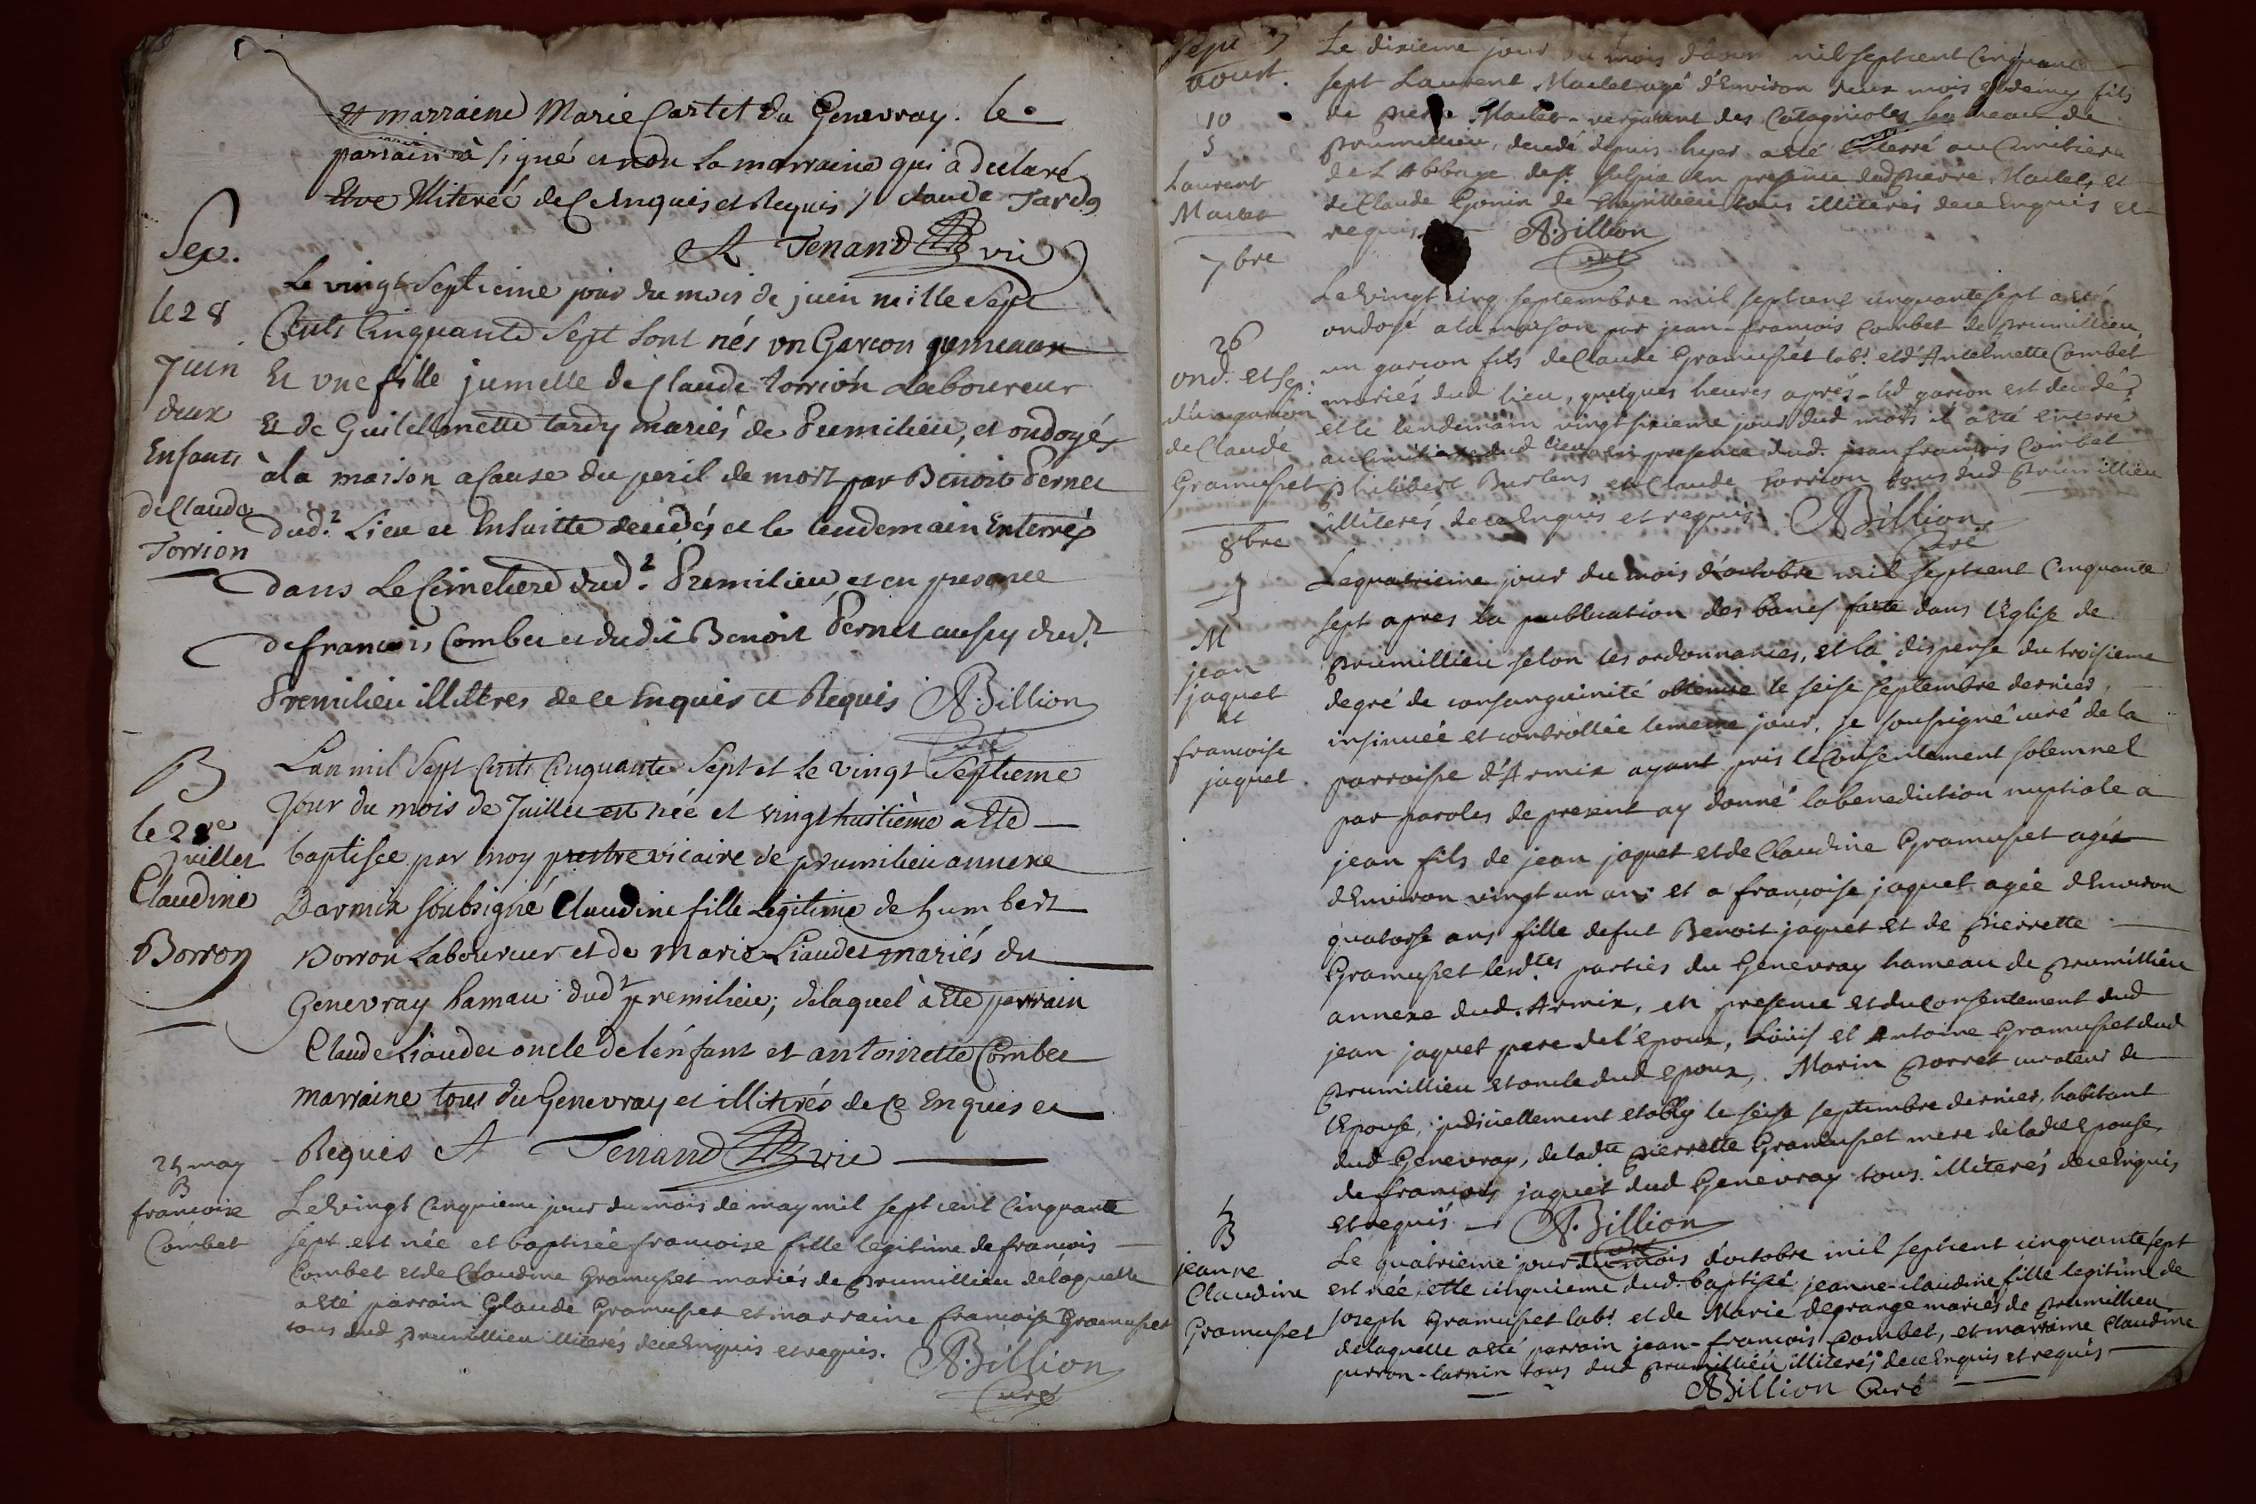 et marraine Marie Cartet du Genevray. le
parrain à signé et non la marraine qui à declaré
Etre Illiterée de Ce Enquis et Requis / Claude Tardy
A Tenand vic
Sep.
le 28
Juin
deux
Enfants
de Claude
Torrion
Le vingt Septieme jour du mois de juin mille Sept
Cents Cinquante Sept sont nés un Garcon gumeaux
Et une fille jumelle de Claude torrion Laboureur
Et de Guilelmette tardy mariés de Prumilieu, et ondoyés
à la maison a Cause du peril de mort par Benoit Pernet
dud.t Lieu et Ensuitte decidés et le lendemain Enterrés
dans Le Cimetiere dud.t Premilieu et en presence
de francois Combet et dudit Benoit Pernet aussy dud.t
Premilieu illitéres de ce Enquis et Requis A. Billion
Curé
B
le 28e
Juillet
Claudine
Borron
L'an mil Sept Cents Cinquante Sept et le vingt Septieme
Jour du mois de Juillet est née et vingt huitième a Eté
baptisée par moy prestre vicaire de prumilieu annexe
Darmix soubsigné Claudine fille Legitime de humbert
Borron Laboureur et de Marie Liaudet mariés du
Genevray hamau dud.t premilieu; delaquel à Eté parrain
Claude Liaudet oncle de l'énfant et antoinette Combet
marraine tous du Genevray et illiterés de Ce Enquis et
Requis A Tenand vic
25 may
B
francoise
Combet
Le vingt Cinquieme jour du mois de may mil sept cent Cinquante
sept est née et baptisée francoise fille legitime de francois
Combet et de Claudine Gramuset mariés de Prumillieu delaquelle
a eté parrain Claude Gramuset et marraine francoise Gramuset
tous dud Prumillieu illiterés de ce Enquis et requis. A. Billion
Curé
Sepu
aoust.
10
5
Laurent
Martet
Le dixieme jour du mois daoust mil sept cent Cinquante
sept Laurent Martet agé d'Environ deux mois et demy fils
de Martet des hameau de
Prumillieu, decedé depuis hyer a eté Enterré au Cimitiere
de L'Abbaye de St Sulpice en presence dud Pierre Martet, et
de Claude Gonin de tous illiterés de ce Enquis et
requis A. Billion
Curé
7bre
26
ond. et Sep.
d'un garcon
de Claude
Gramuset
Le vingt cinq septembre mil sept cent cinquante sept a eté
ondoyé a la maison par jean-francois Combet de prumillieu
un garcon fils de Claude Gramuset lab.r et d'Antelmette Combet
mariés dud lieu, quelques heures aprés led garcon est decedé,
et le lendemain vingt sixieme jour dud mois il a été Enterré
au Cimitiere dud lieu en presence dud. jean francois Combet
philibert et Claude torrion tous dud Prumillieu
illiterés de ce Enquis et requis. A. Billion
Curé
8bre
4
M
jean
jaquet
et
francoise
jaquet
Le quatrieme jour du mois d'octobre mil sept cent Cinquante
sept apres la publication des bancs faite dans l'Eglise de
prumillieu selon les ordonnances, et la dispense du troisieme
degré de consanguinité obtenue le seise septembre dernier
insinuée et controllée le meme jour, je soussigné curé de la
parroisse d'Armix ayant pris le Consentement solemnel
par paroles de present ay donné la benediction nuptiale a
jean fils de jean jaquet et de Claudine Gramuset agés
d'Environ vingt un ans et a françoise jaquet agée d'Environ
quatorse ans fille de fut Benoit jaquet et de Pierrette
Gramuset lesd.tes parties du Genevray hameau de prumillieu
annexe dud. Armix, en presence et du Consentement dud
jean jaquet pere de l'époux, Loüis et Antoine Gramuset dud
Prumillieu et oncle dud epoux, Marin Porret curateur de
l'Epouse, judiciellement etably le seise septembre dernier, habitant
dud Genevray, de ladte Pierrette Gramuset mere de ladte epouse,
de francois jaquet dud Genevray tous illiterés de ce Enquis
et requis A. Billion
Curé
4
B
jeanne
Claudine
Gramuset
Le quatrieme jour du mois d'octobre mil sept cent cinquante sept
est née et le cinquieme dud. baptisée jeanne-claudine fille legitime de
joseph Gramuset lab.r et de Marie degrange mariés de prumillieu
delaquelle a eté parrain jean-francois Combet, et marraine Claudine
tous dud prumillieu illiterés de ce Enquis et requis
A Billion Curé